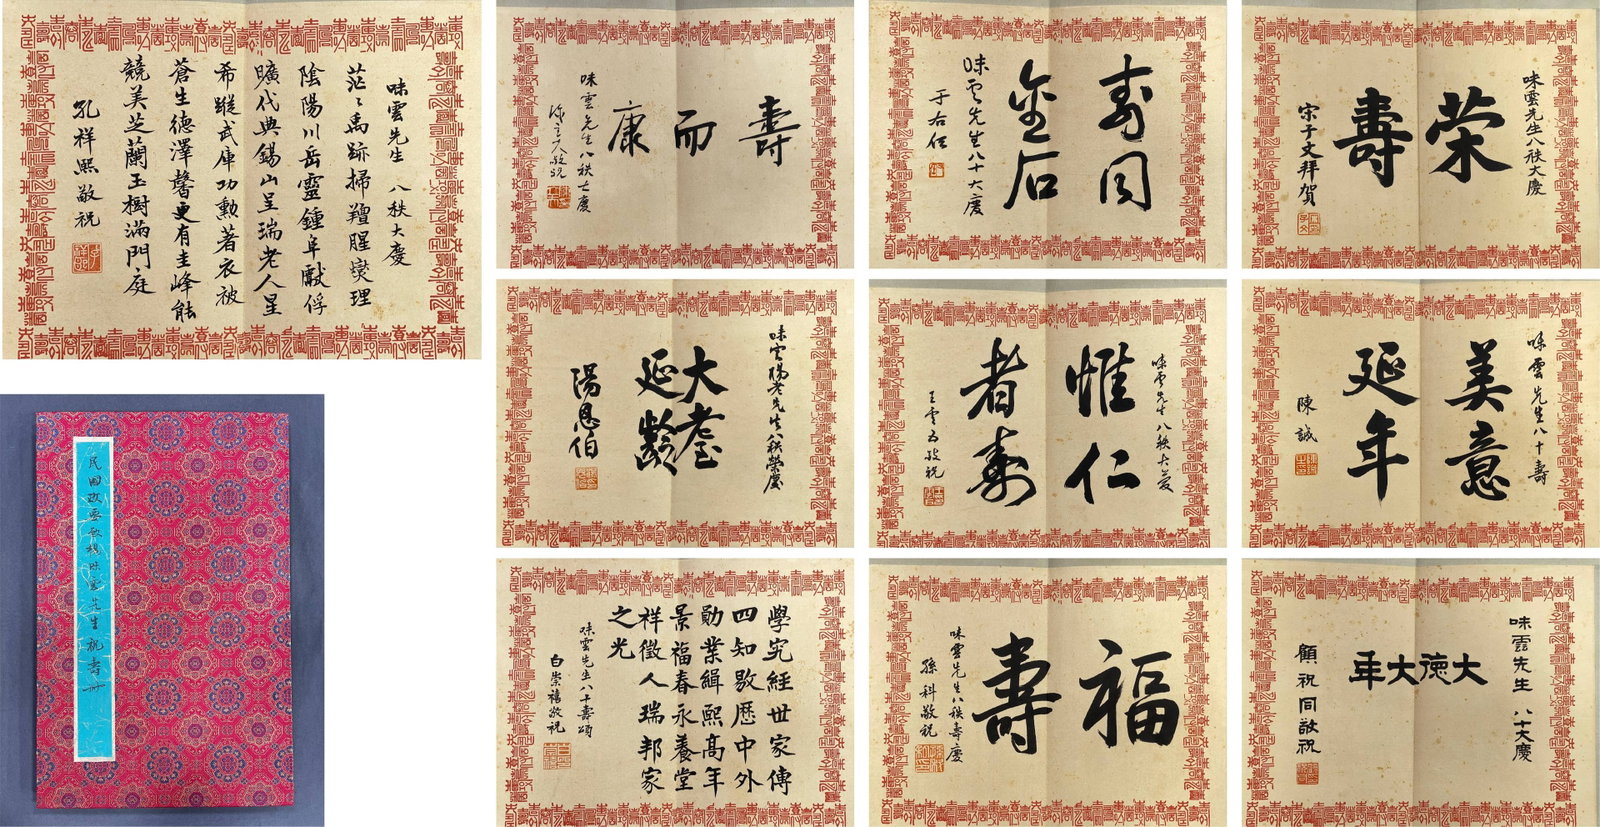 味雲先生 八秩大慶
茫々禹跡掃羶腥燮理
陰陽川岳靈鍾阜獻俘
曠代典錫山呈瑞老人星
希蹤武庫功勳著衣被
蒼生德澤馨更有圭峰能
競美芝蘭玉樹滿門庭
孔祥熙敬祝
壽而康
味雲先生八秩大慶
陳立夫敬祝
壽同
金石
味雲先生八十大慶
于右任
味雲先生八秩大慶
榮壽
宋子文拜賀
味雲楊老先生八秩榮慶
大耋
延齡
湯恩伯
味雲先生八秩大慶
惟仁
者壽
王雲五敬祝
味雲先生八十壽
美意
延年
陳誠
民国政要敬楊味雲先生祝壽冊
學究經世家傳
四知敭歷中外
勛業緝熙高年
景福春永養堂
祥徵人瑞邦家
之光
味雲先生八十壽頌
白崇禧敬祝
福壽
味雲先生八秩壽慶
孫科敬祝
味雲先生 八十大慶
大德大年
顧祝同敬祝